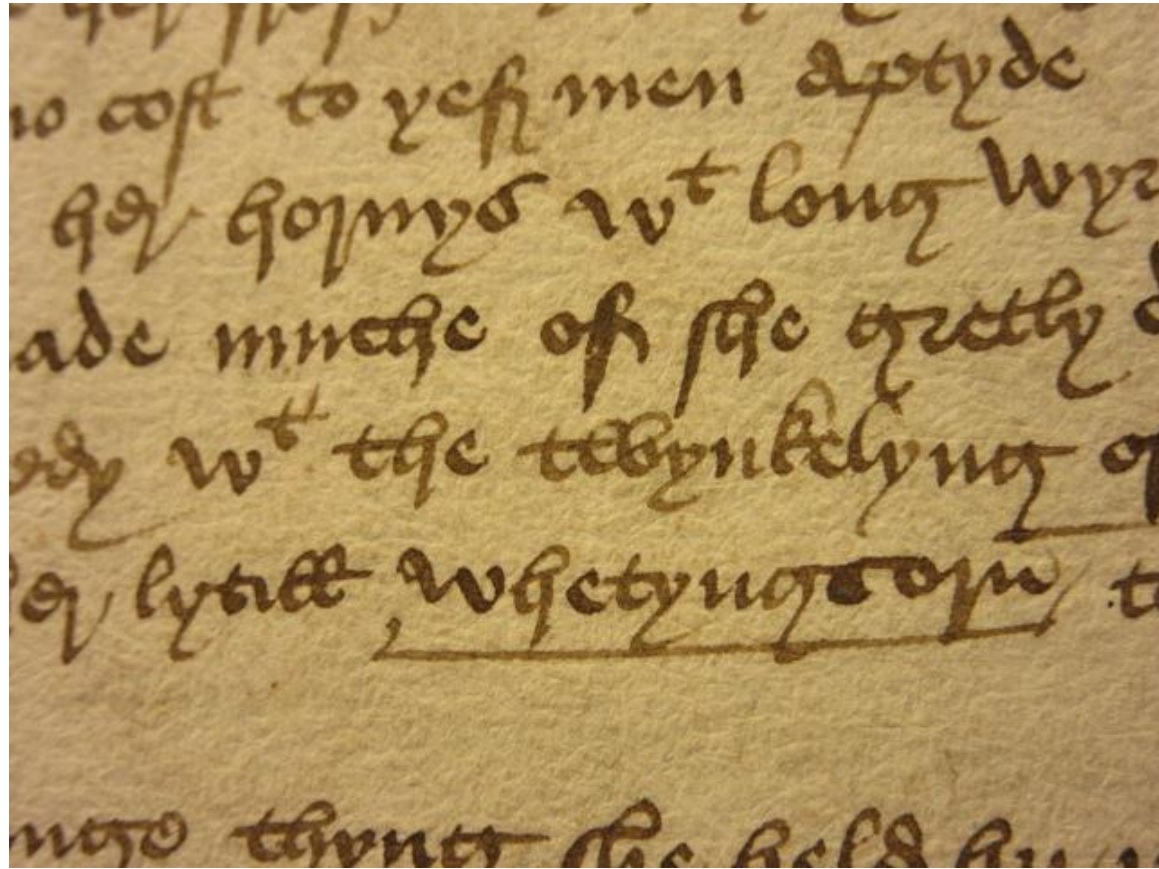 no cost to yeff men aptyde
her hornys wt long wyr
ade muche off she gretly
edy wt the twynkelyng of
er lytill whetyngcorn to
thyng she held by